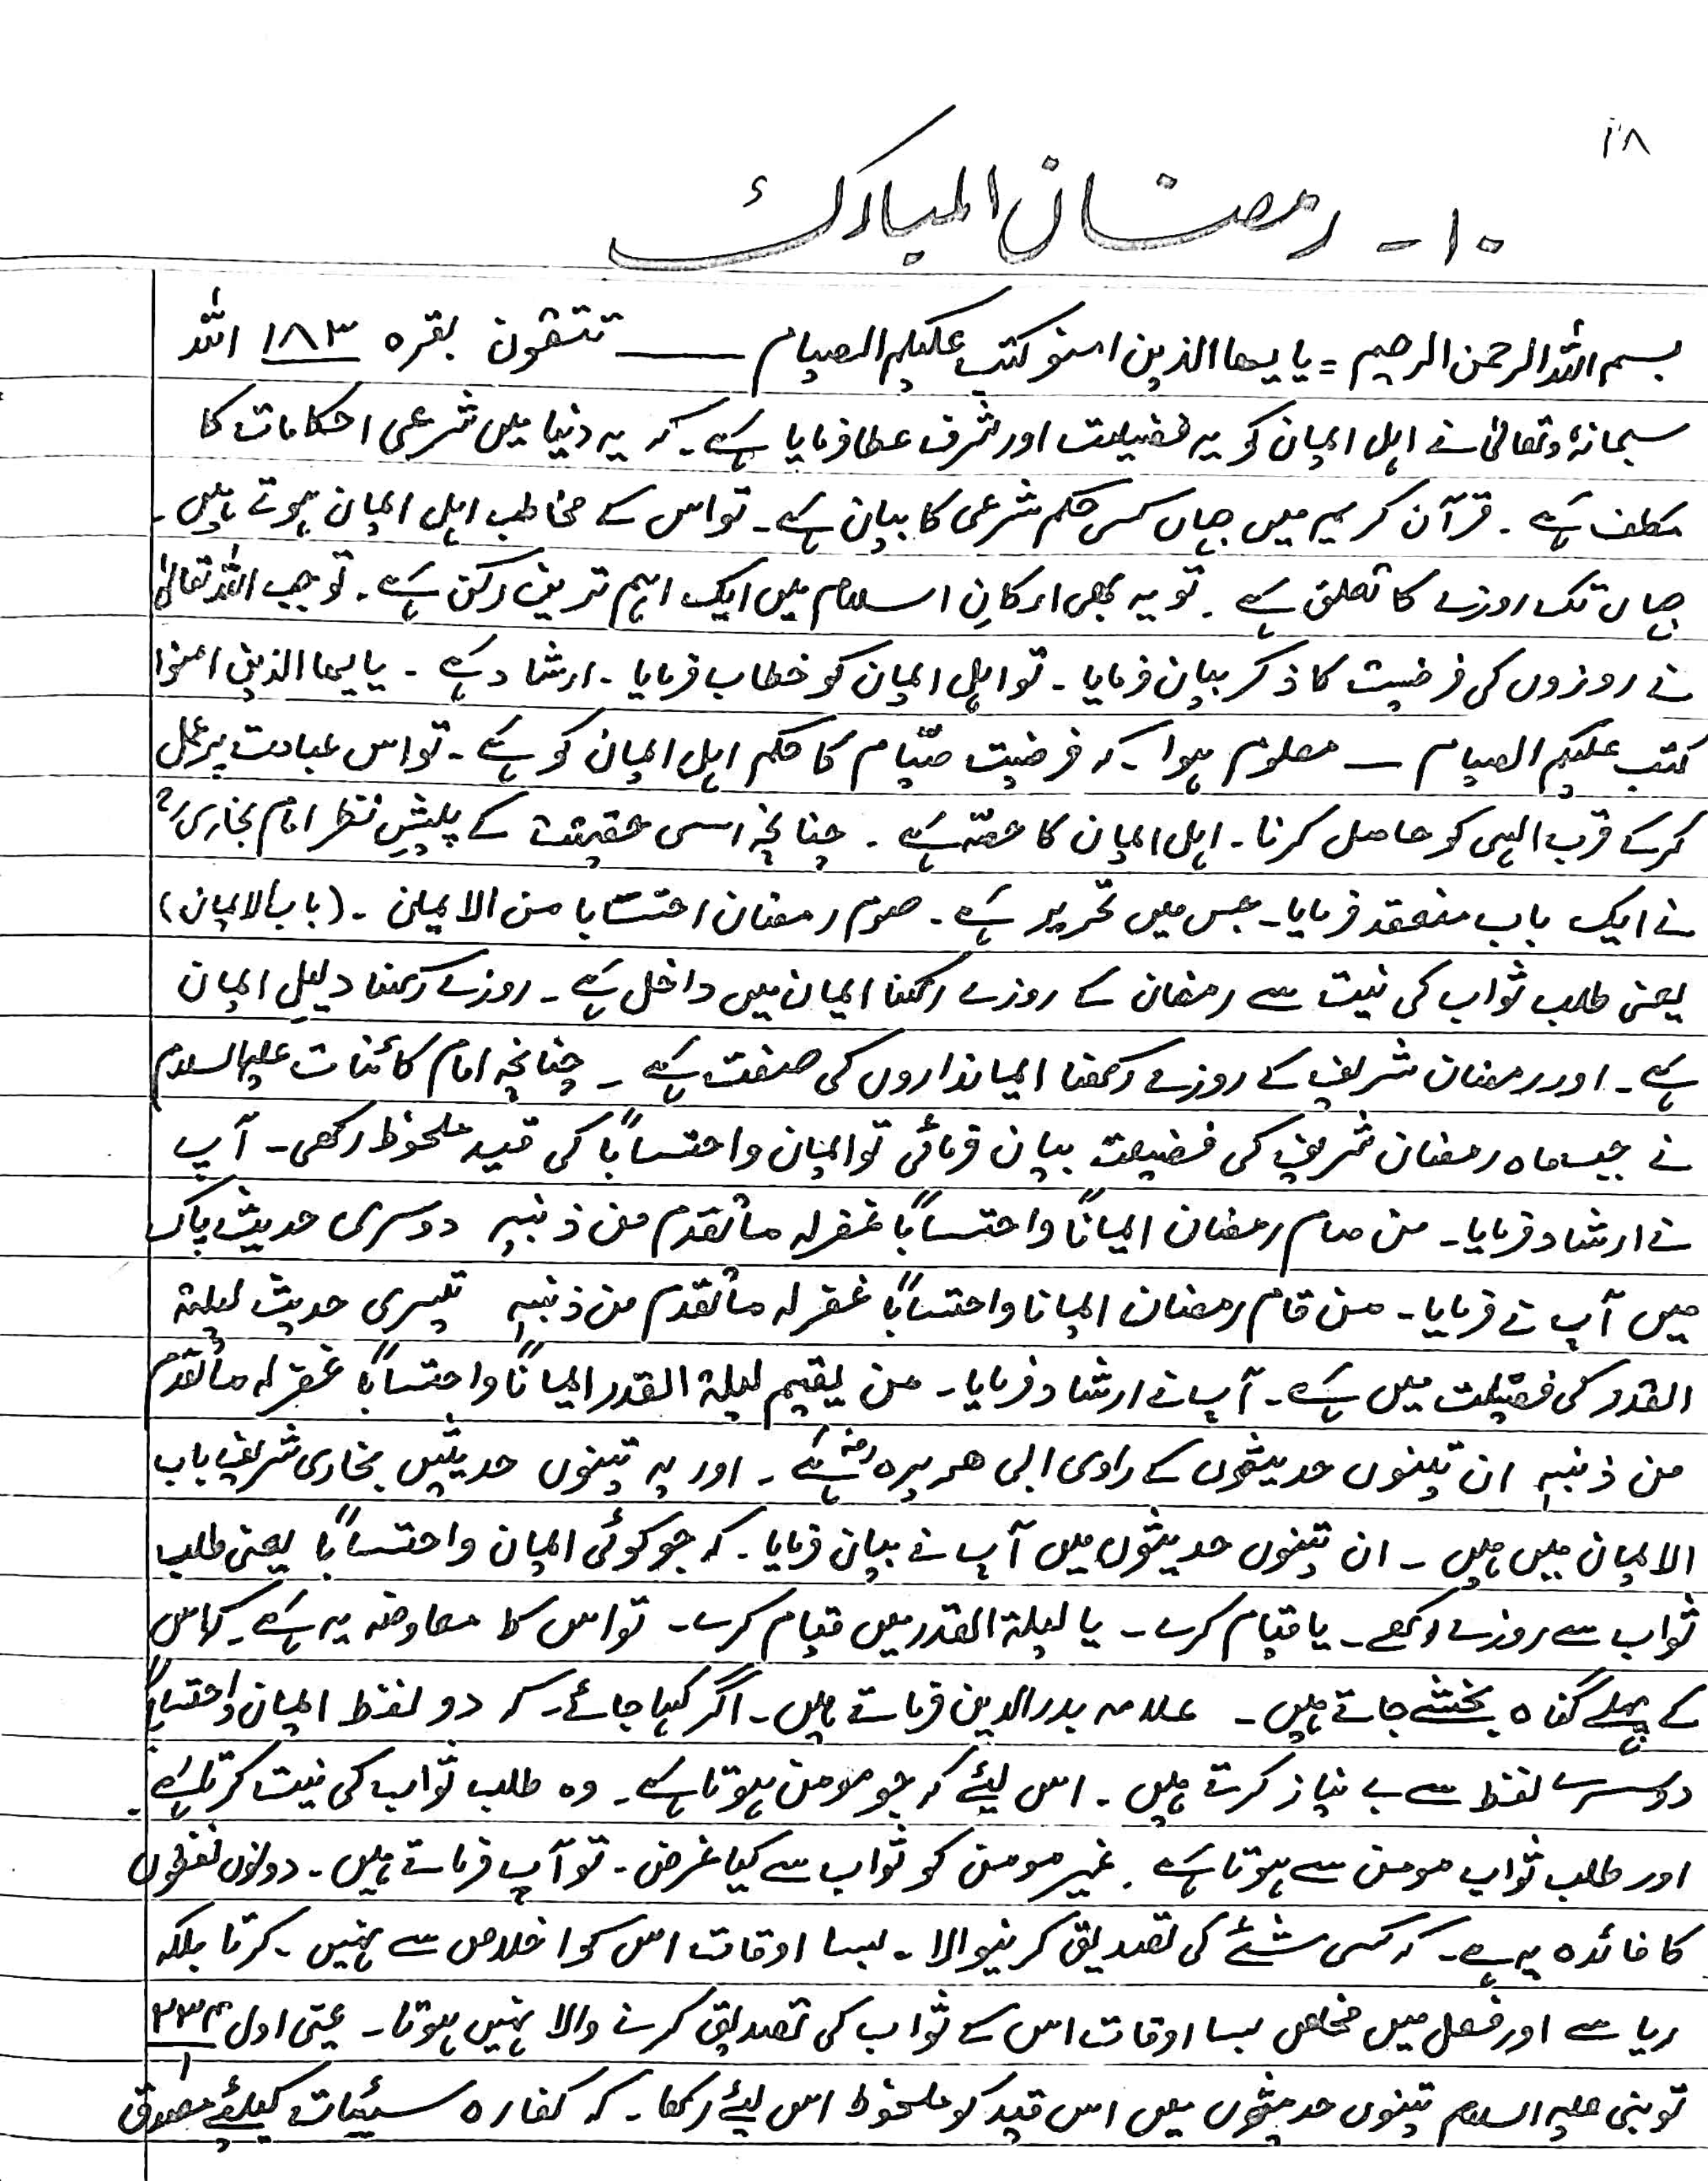 ۱۸
۱۰۔ رمضان المبارک
بسم اللہ الرحمن الرحیم = یایھا الذین امنو کتب علیکم الصیام ــــــ تتقون بقرہ ۱۸۳ اللہ
سبحانہٗ وتعالیٰ نے اہل ایمان کو یہ فضیلت اور شرف عطا فرمایا ہے۔ کہ یہ دنیا میں شرعی احکامات کا
مکلف ہے۔ قرآن کریم میں جہاں کسی حکم شرعی کا بیان ہے۔ تو اس کے مخاطب اہل ایمان ہوتے ہیں۔
جہاں تک روزے کا تعلق ہے۔ تو یہ بھی ارکانِ اسلام میں ایک اہم ترین رکن ہے۔ تو جب اللہ تعالیٰ
نے روزوں کی فرضیت کا ذکر بیان فرمایا۔ تو اہل ایمان کو خطاب فرمایا۔ ارشاد ہے۔ یایھا الذین امنوا
کتب علیکم الصیام ــ معلوم ہوا۔ کہ فرضیت صیام کا حکم اہل ایمان کو ہے۔ تو اس عبادت پر عمل
کرکے قرب الہی کو حاصل کرنا۔ اہل ایمان کا حصّہ ہے۔ چنانچہ اسی حقیقت کے پیشِ نظر امام بخاریؒ
نے ایک باب منعقد فرمایا۔ جس میں تحریر ہے۔ صوم رمضان احتسابا من الایمان۔ (باب الایمان)
یعنی طلب ثواب کی نیت سے رمضان کے روزے رکھنا ایمان میں داخل ہے۔ روزے رکھنا دلیلِ ایمان
ہے۔ اور رمضان شریف کے روزے رکھنا ایمانداروں کی صفت ہے۔ چنانچہ امام کائنات علیہ السلام
نے جب ماہ رمضان شریف کی فضیلت بیان فرمائی تو ایمان واحتساباً کی قید ملحوظ رکھی۔ آپ
نے ارشاد فرمایا۔ من صام رمضان ایماناً واحتساباً غفر لہ ما تقدم من ذنبہٖ دوسری حدیث پاک
میں آپ نے فرمایا۔ من قام رمضان ایمانا واحتساباً غفر لہ ما تقدم من ذنبہٖ تیسری حدیث لیلۃ
القدر کی فضیلت میں ہے۔ آپ نے ارشاد فرمایا۔ من یقیم لیلۃ القدر ایماناً واحتساباً غفر لہ ما تقدم
من ذنبہٖ ان تینوں حدیثوں کے راوی ابی ھریرہ رضؓ ہے۔ اور یہ تینوں حدیثیں بخاری شریف باب
الایمان میں ہیں۔ ان تینوں حدیثوں میں آپ نے بیان فرمایا۔ کہ جو کوئی ایمان واحتساباً یعنی طلب
ثواب سے روزے رکھے۔ یا قیام کرے۔ یا لیلۃ القدر میں قیام کرے۔ تو اس کا معاوضہ یہ ہے۔ کہ اس
کے پہلے گناہ بخشے جاتے ہیں۔ علامہ بدر الدین فرماتے ہیں۔ اگر کہا جائے۔ کہ دو لفظ ایمان واحتساباً
دوسرے لفظ سے بے نیاز کرتے ہیں۔ اس لیئے کہ جو مومن ہوتا ہے۔ وہ طلب ثواب کی نیت کرتا ہے۔
اور طلب ثواب مومن سے ہوتا ہے۔ غیر مومن کو ثواب سے کیا غرض۔ تو آپ فرماتے ہیں۔ دونوں لفظوں
کا فائدہ یہ ہے۔ کہ کسی شئے کی تصدیق کرنیوالا۔ بسا اوقات اس کو اخلاص سے نہیں۔ کرتا بلکہ
ریا سے اور فعل میں مخلص بسا اوقات اس کے ثواب کی تصدیق کرنے والا نہیں ہوتا۔ عینی اول ۲۳۴/۱
تو نبی علیہ السلام تینوں حدیثوں میں اس قید کو ملحوظ اس لیئے رکھا۔ کہ کفارہ سئیات کیلئے مصدق